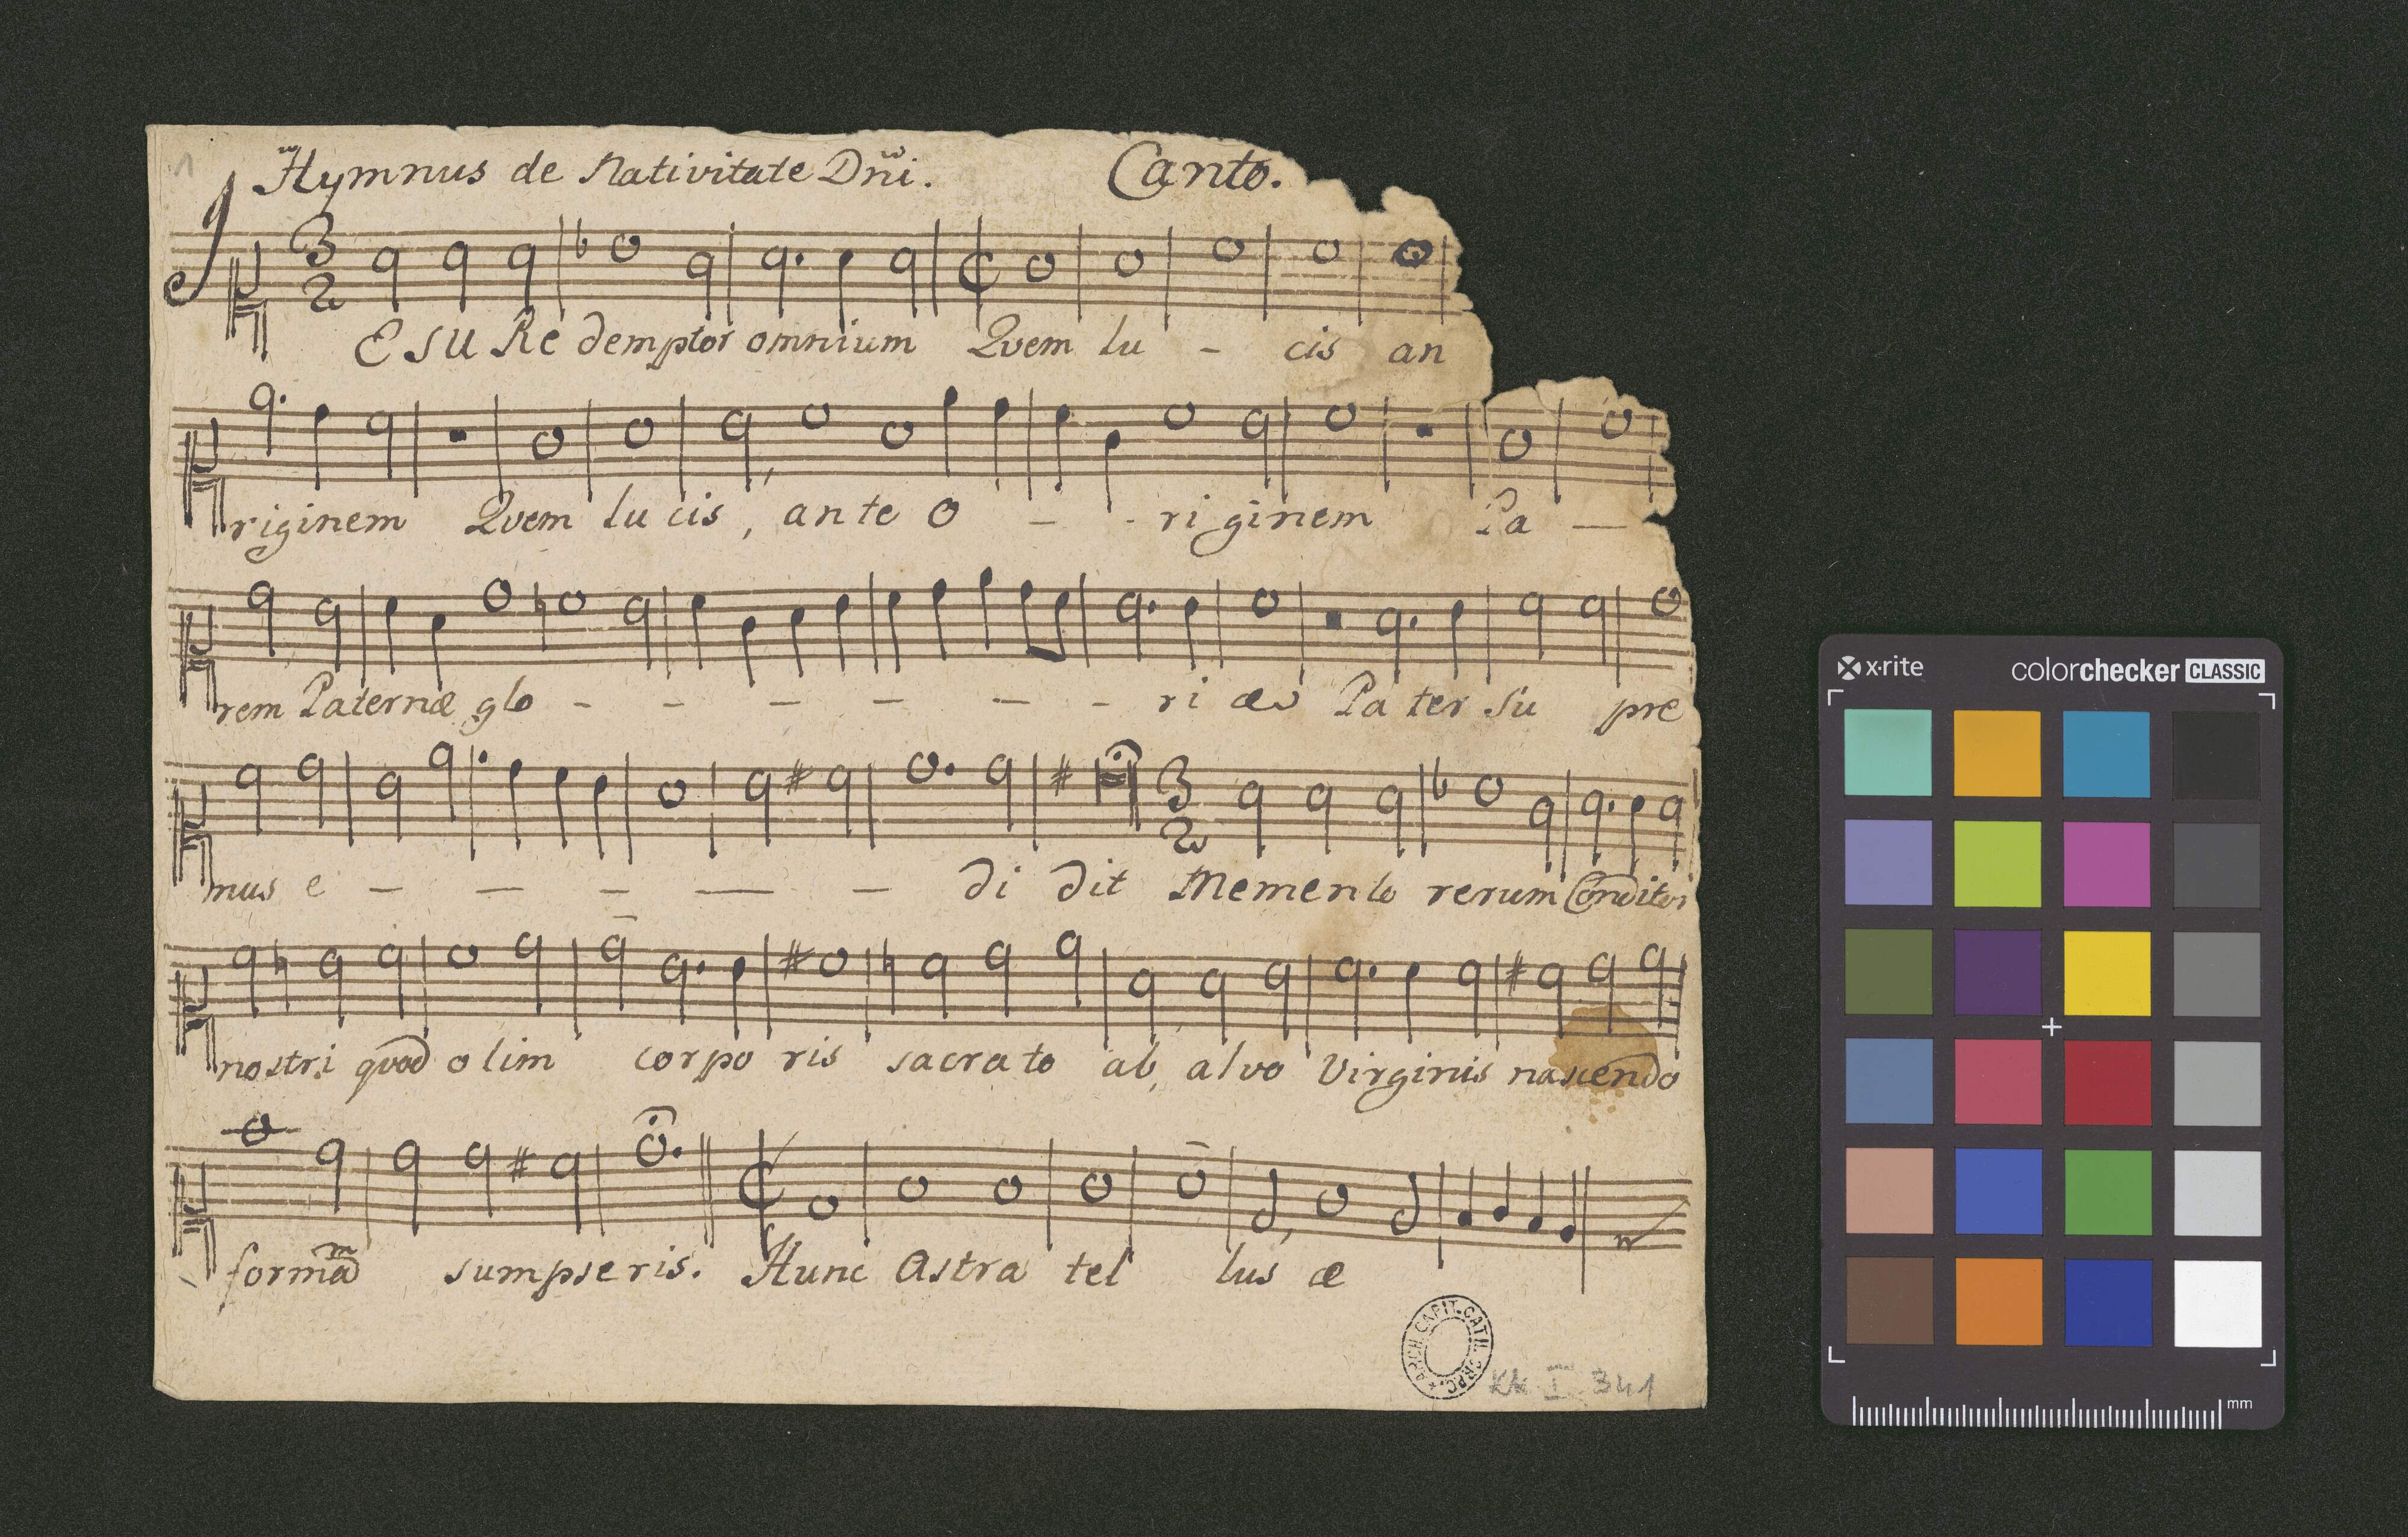 1
Hymnus de Nativitate Dñi. Canto.
3
2
JESU Redemptor omnium Qvem lu - cis an
riginem Qvem lu cis, ante O - - riginem Pa —
rem Paternæ glo - - - - - - ri æ Pater su pre
3
2
mus e - - - - - di dit Memento rerum Conditor
nostri quod olim corpo ris sacrato ab alvo Virginis nascendo
formã sumpseris. Hunc Astra tel lus æ
ARCH. CAPIT. CATH. CRAC.
KK I 341
x·rite
colorchecker CLASSIC
mm